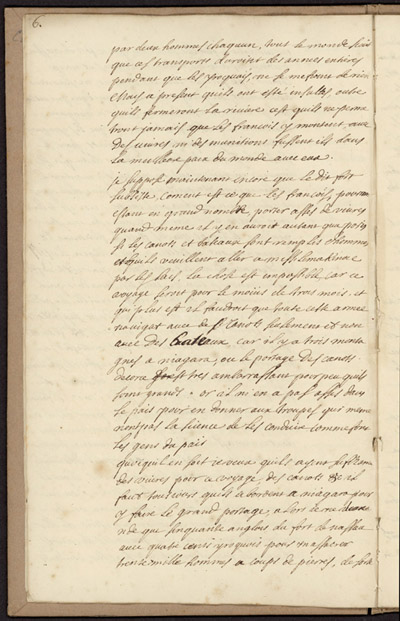 6.
par deux hommes chaqun. tous le monde sçai
que ces transports duroint des années entieres
pendant que les yroquois, ne se mesloint de rien
Mais a present quils ont esté insultés, outre
quils fermeront la riviere cest quils ne perme
tront jamais que les francois y montent avec
des vivres ni des munitions fussent ils dans
la meilleure paix du monde avec eux.
je suppose maintenant encore que le dit fort
subsiste, coment est ce que les francois, pouvan
estant en grand nombre, porter asses de vivres
quand meme il y en auroit autant qua
si les canots et bateaux sont remplis dhommes
et quils veuillent aller a missilimakinac
par les lacs. la chose est impossible car ce
voyage seroit pour le moins de trois mois. et
qui plus est il faudroit que toute cette armée
navigat avec des canots seulement et non
avec des bateaux, car il y a trois monta
gnes a niagara, ou le portage des canots
decorce est tres embarrassant pour peu quils
soint grands. or il ni en a pas asses dans
le païs pour en donner aux troupes qui meme
nont pas la sience de les conduire comme font
les gens du païs
quoiqu'il en soit je veux quils ayent suffisam
des vivres pour ce voyage, des canots &c il
faut tousjours quils abordent a niagara pour
y faire le grand portage, alors je ne
nde que sinquante anglois du fort de nassau
avec quatre cents yroquois pour massacrer
trente mille hommes a coups de pierres, de sorte